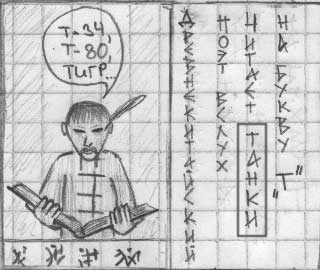 Т-34,
Т-80,
ТИГР...
ДРЕВНЕКИТАЙСКИЙ
ПОЭТ ВСЛУХ
ЧИТАЕТ ТАНКИ
НА БУКВУ "Т"